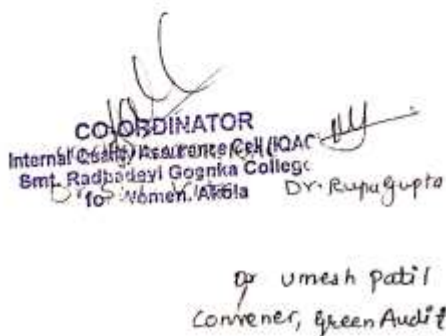 CO-ORDINATOR
Internal Quality Assurance Cell (IQAC
Smt. Radhadevi Goenka College
for Women, Akola
Dr. Rupa Gupta
Dr Umesh Patil
Convener, Green Audit